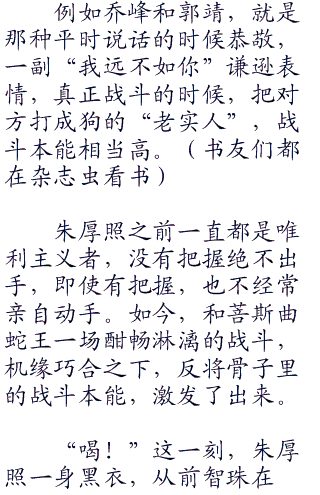 例如乔峰和郭靖，就是
那种平时说话的时候恭敬，
一副“我远不如你”谦逊表
情，真正战斗的时候，把对
方打成狗的“老实人”，战
斗本能相当高。（书友们都
在杂志虫看书）
朱厚照之前一直都是唯
利主义者，没有把握绝不出
手，即使有把握，也不经常
亲自动手。如今，和菩斯曲
蛇王一场酣畅淋漓的战斗，
机缘巧合之下，反将骨子里
的战斗本能，激发了出来。
“喝！”这一刻，朱厚
照一身黑衣，从前智珠在